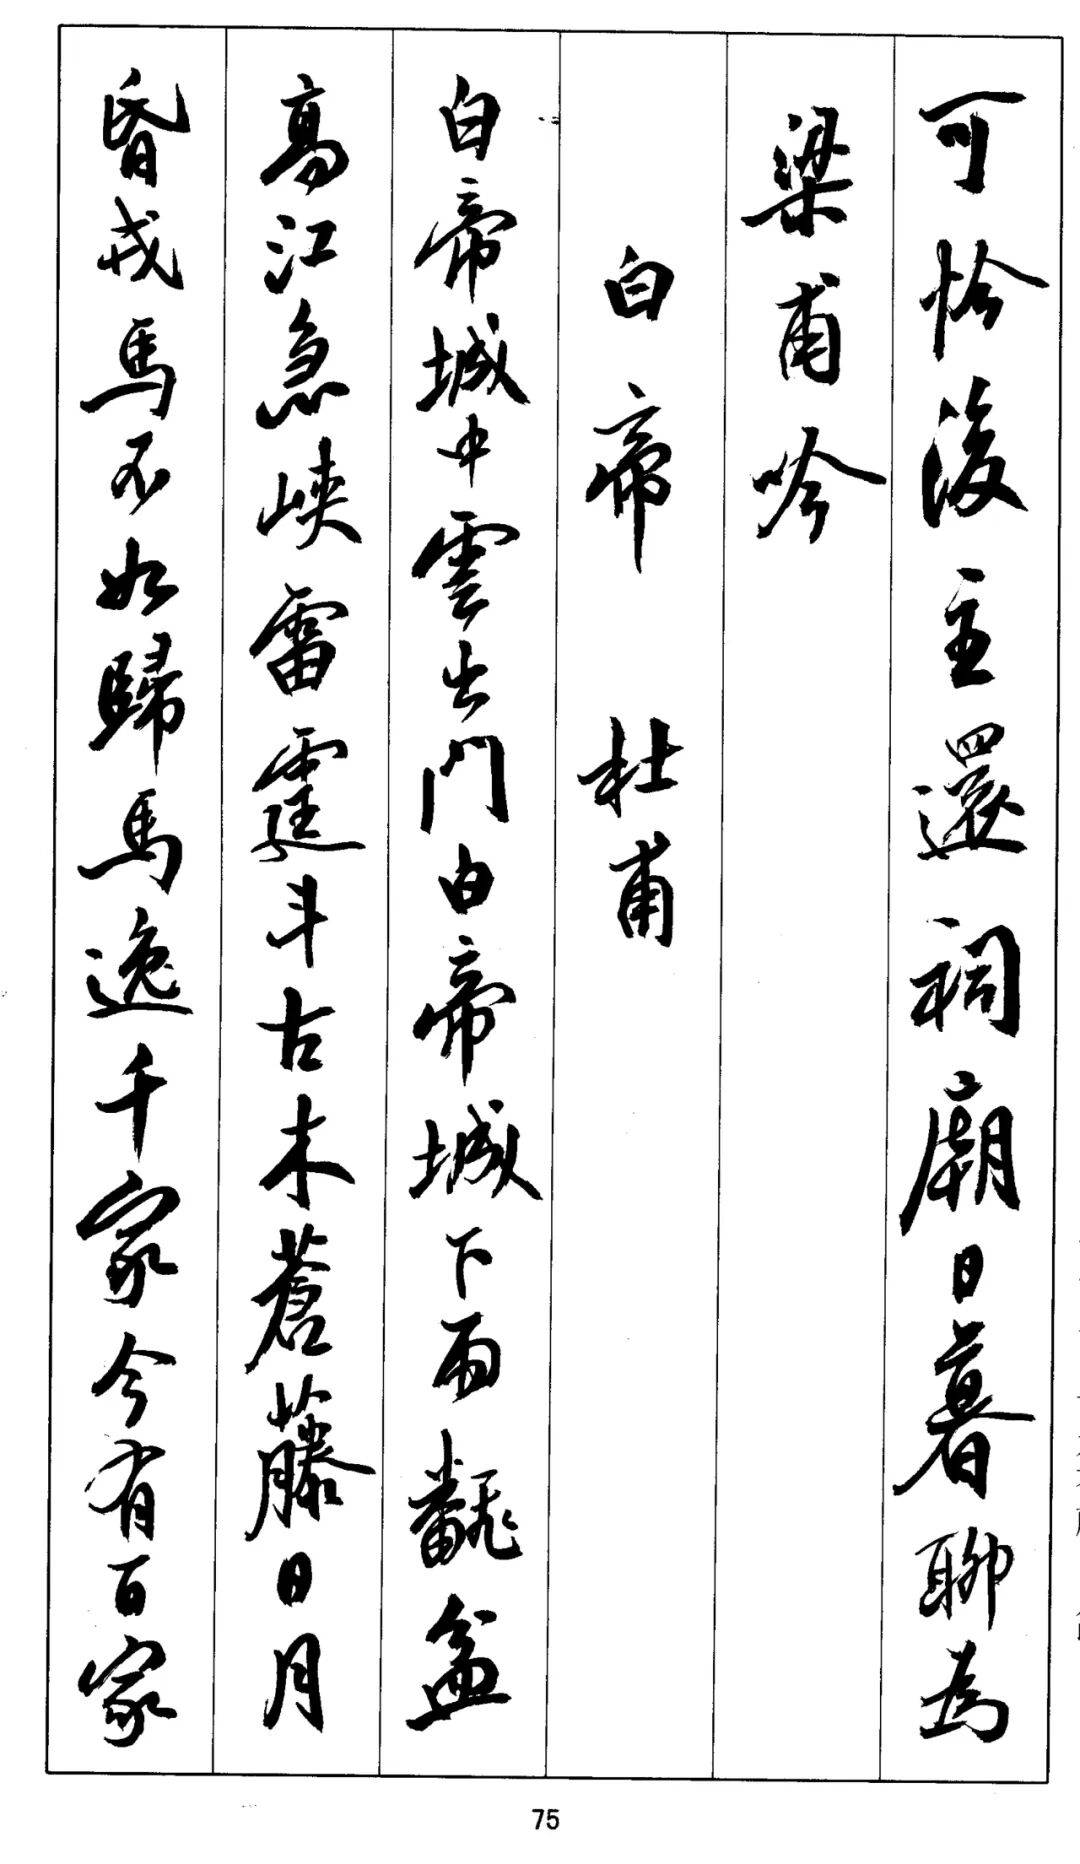 可怜後主還祠廟日暮聊為
梁甫吟
白帝 杜甫
白帝城中雲出門白帝城下雨翻盆
高江急峽雷霆斗古木蒼藤日月
昏戎馬不如歸馬逸千家今有百家
75